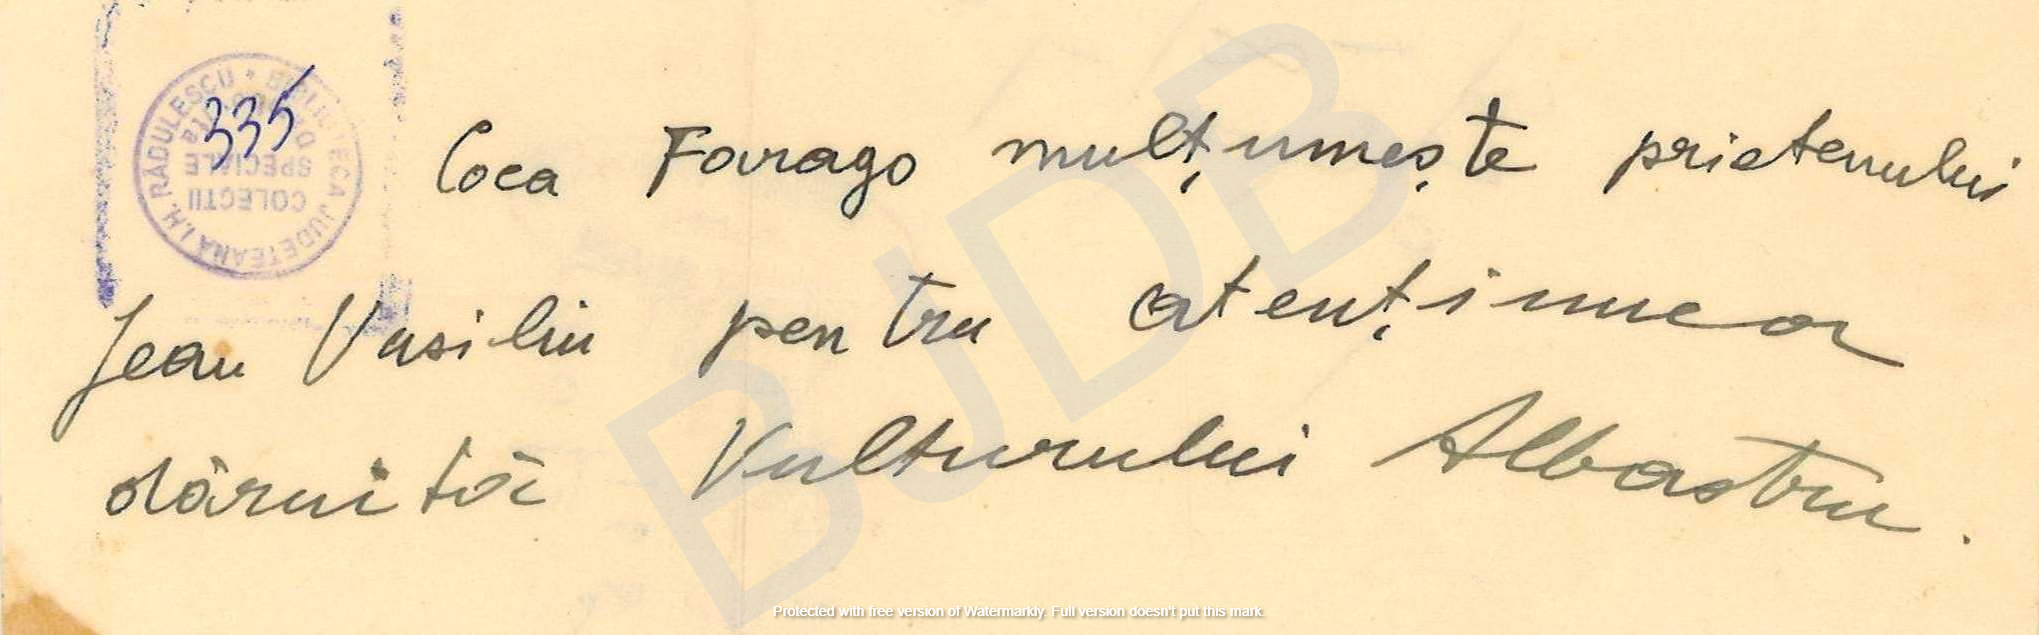 BIBLIOTECA JUDEȚEANĂ I.H. RĂDULESCU
COLECȚII
SPECIALE
335
Coca Farago mulțumește prietenului
Jean Vasiliu pentru atențiunea
dăruită Vulturului Albastru.
BJDB
Protected with free version of Watermarkly. Full version doesn't put this mark.